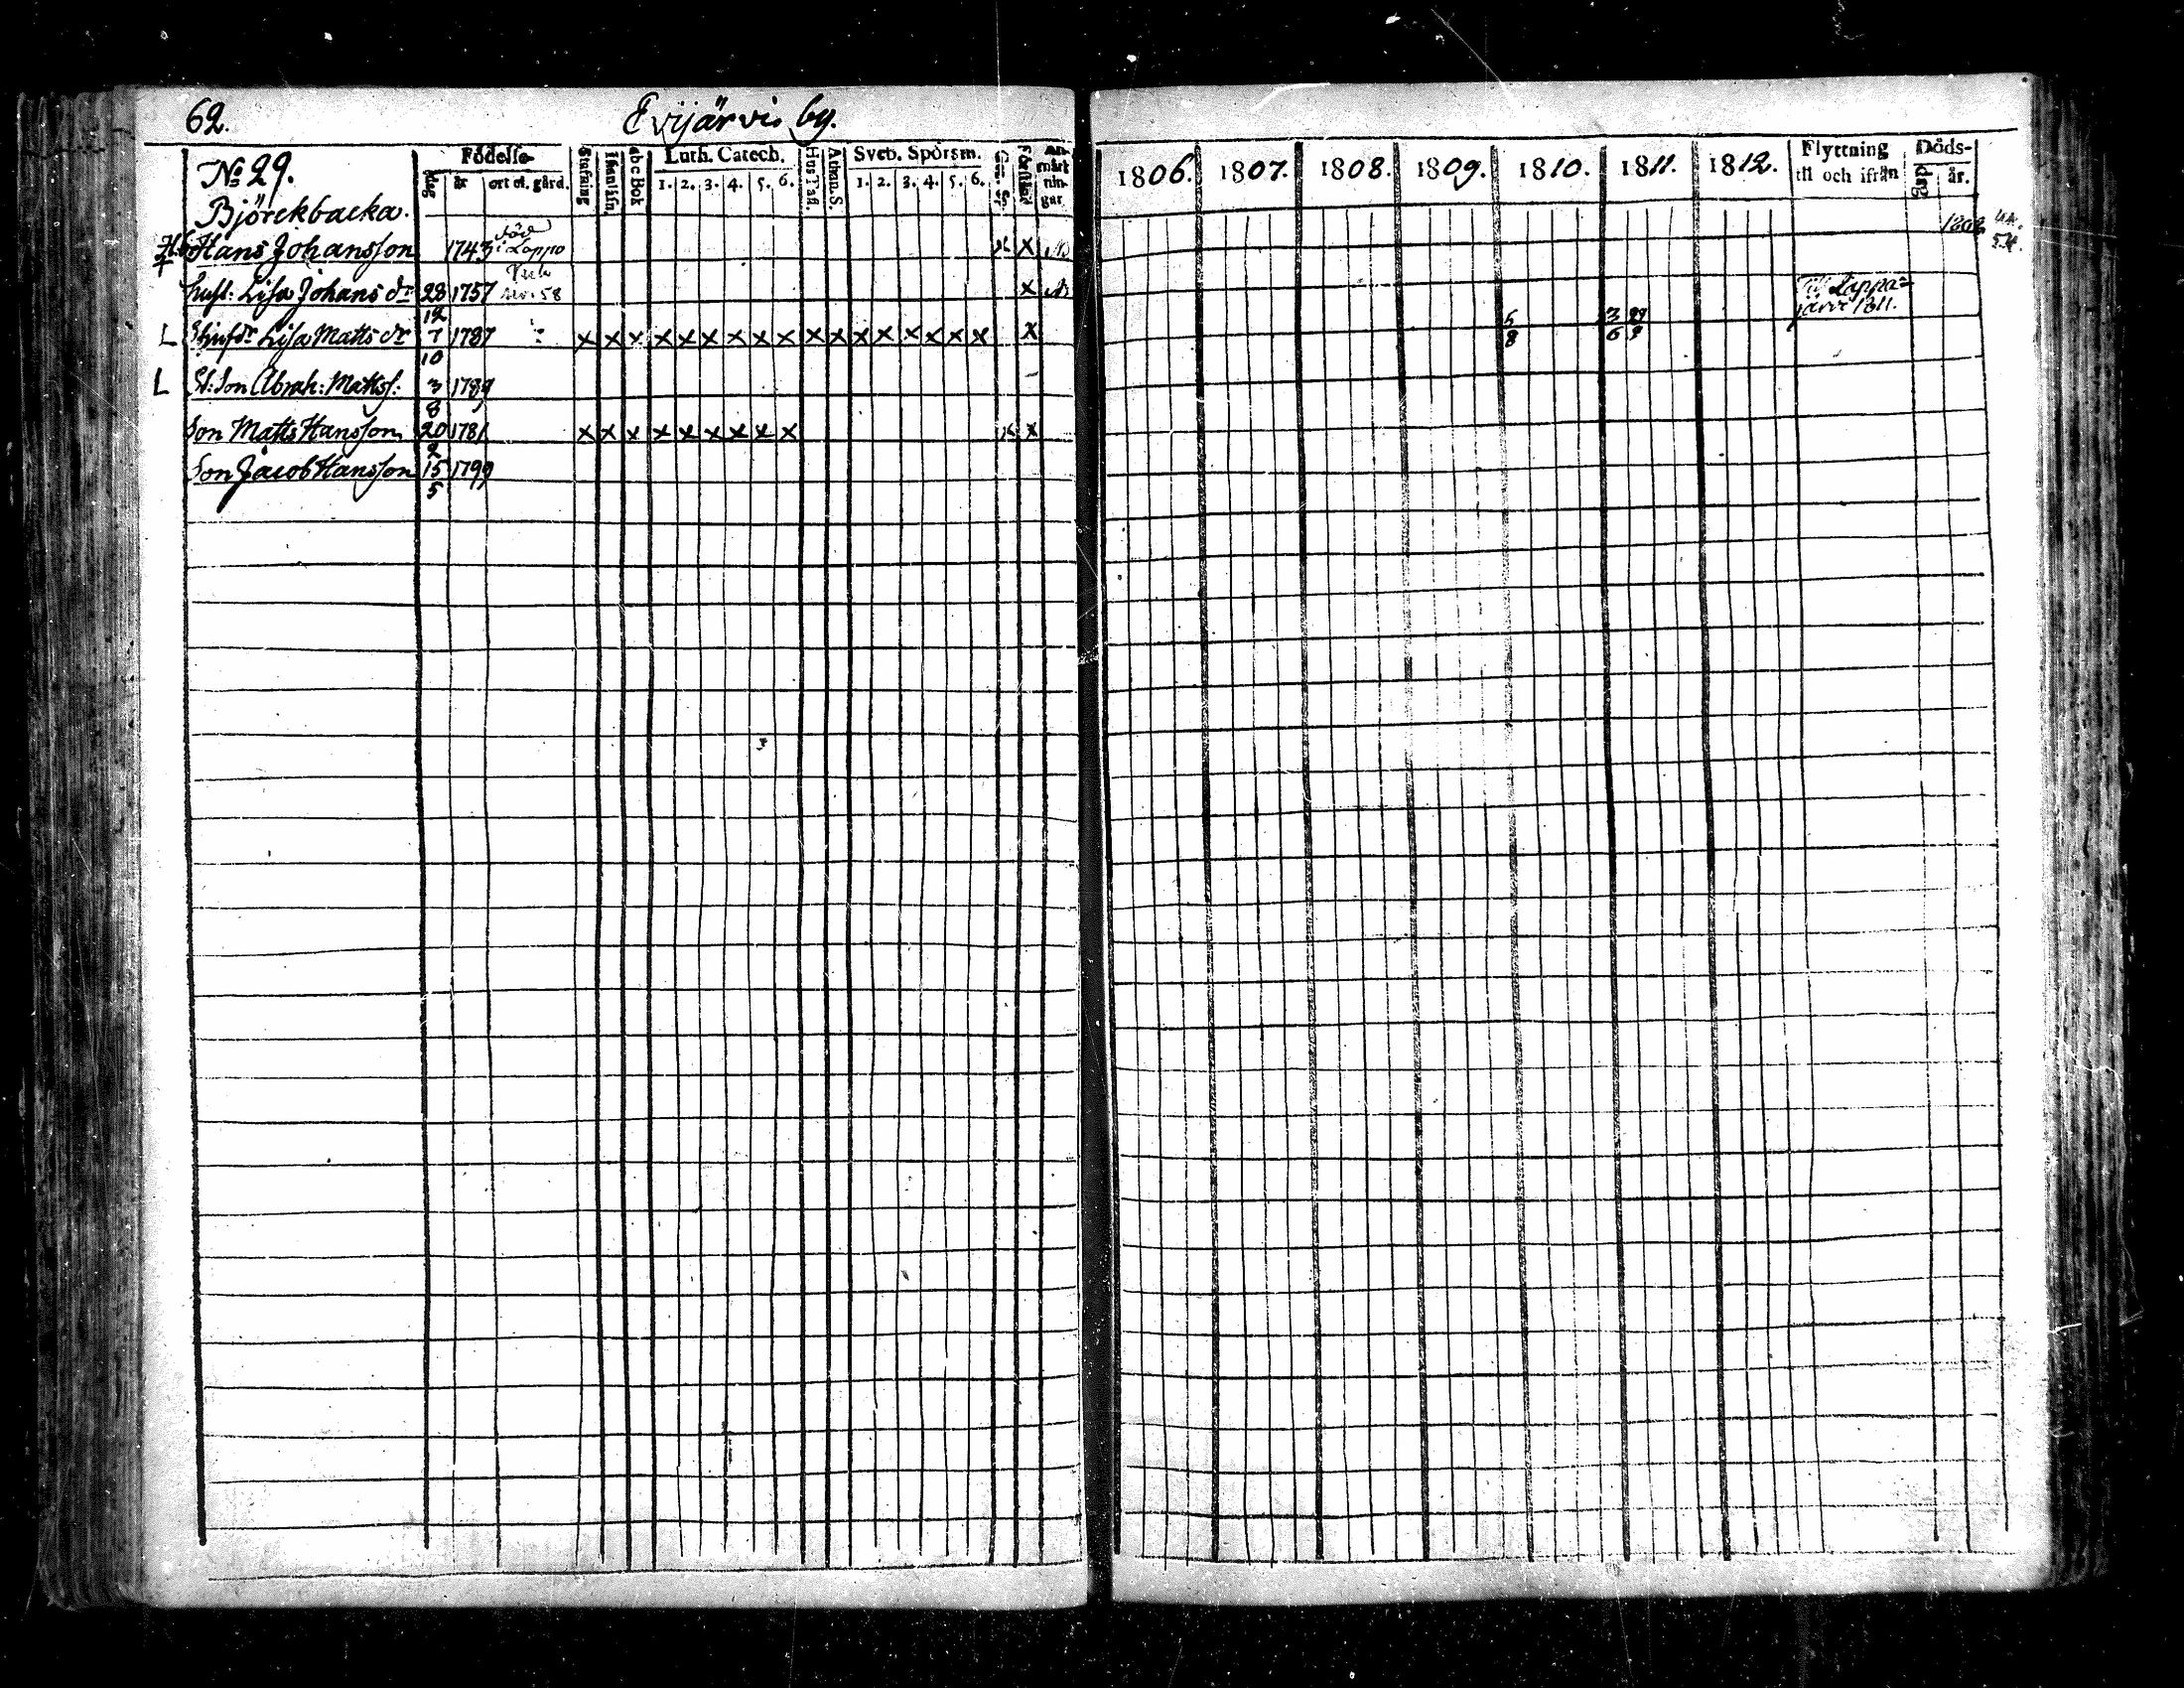 62. Evijärvi by.
No 29.
Födelse-
dag år ort ol. gård.
Stafning
Innanläsn.
abc Bok
Luth. Catech.
1. 2. 3. 4. 5. 6.
Hus Tafl.
Athan. S.
Sveb. Spörsm.
1. 2. 3. 4. 5. 6.
Förstånd
An-
märk
nin-
gar
1806. 1807. 1808. 1809. 1810. 1811. 1812.
Flyttning
till och ifrån
Döds-
dag år.
Björckbacka.
Hans Johansson 1743 död i Lappo x x 1808
hust: Lisa Johans dr 28/12 1757 58 x Till Lappa=
järvi 1811.
L Lisa Matts dr 7/10 1787 x x x x x x x x x x x x x x x x x x 5/8 3/6
L St: Son Abrah: Matts: 3/8 1789
Son Matts Hansson 20/2 1781 x x x x x x x x x x x
Son Jacob Hansson 15/5 1799